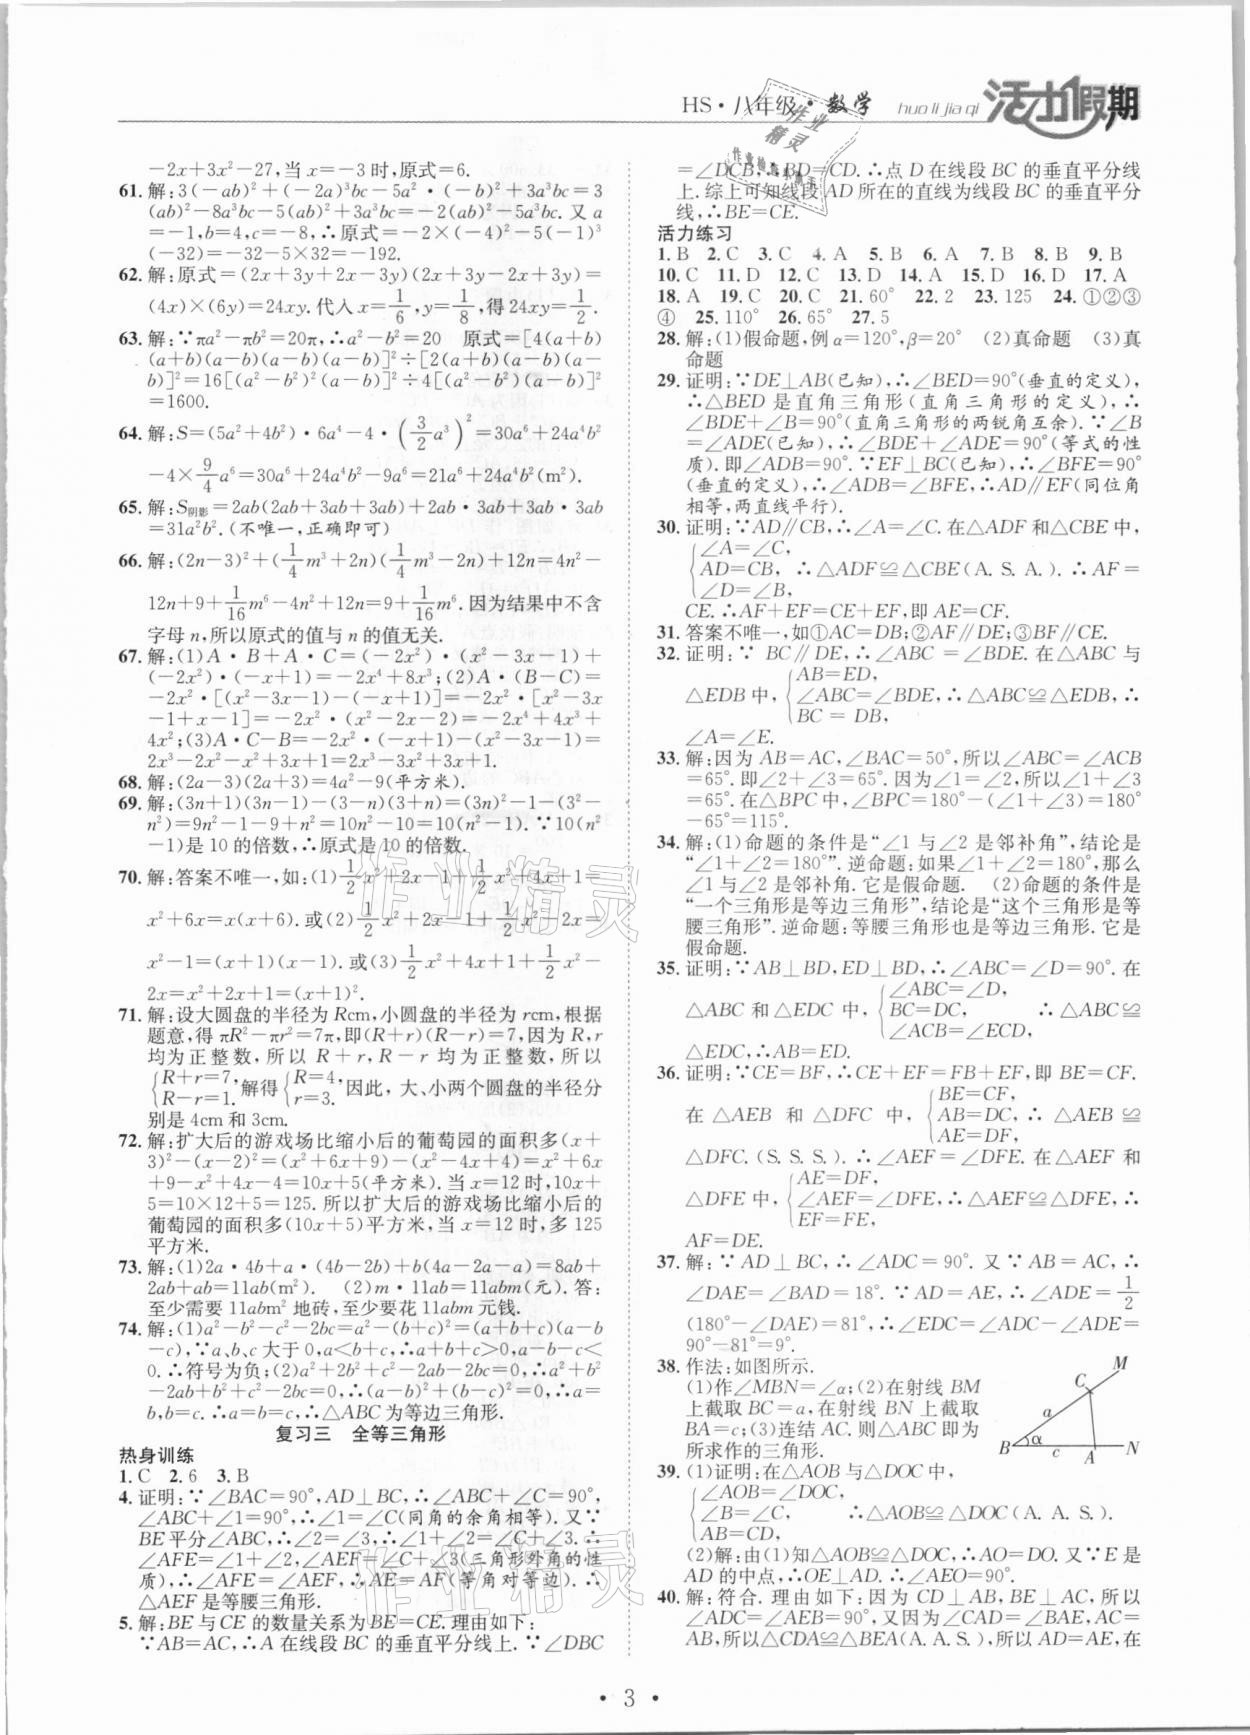 HS·八年级·数学 huo li jia qi 活力假期
-2x+3x²-27,当x=-3时,原式=6.
61. 解:3(-ab)²+(-2a)³bc-5a²·(-b)²+3a³bc=3
(ab)²-8a³bc-5(ab)²+3a³bc=-2(ab)²-5a³bc.又a
=-1,b=4,c=-8,∴原式=-2×(-4)²-5(-1)³
(-32)=-32-5×32=-192.
62. 解:原式=(2x+3y+2x-3y)(2x+3y-2x+3y)=
(4x)×(6y)=24xy.代入x=1/6,y=1/8,得24xy=1/2.
63. 解:∵πa²-πb²=20π,∴a²-b²=20 原式=[4(a+b)
(a+b)(a-b)(a-b)(a-b)]²÷[2(a+b)(a-b)(a-
b)]²=16[(a²-b²)²(a-b)]²÷4[(a²-b²)(a-b)]²=
1600.
64. 解:S=(5a²+4b²)·6a⁴-4·(3/2a³)²=30a⁶+24a⁴b²
-4×9/4a⁶=30a⁶+24a⁴b²-9a⁶=21a⁶+24a⁴b²(m²).
65. 解:S阴影=2ab(2ab+3ab+3ab)+2ab·3ab+3ab·3ab
=31a²b².(不唯一,正确即可)
66. 解:(2n-3)²+(1/4m³+2n)(1/4m³-2n)+12n=4n²-
12n+9+1/16m⁶-4n²+12n=9+1/16m⁶.因为结果中不含
字母n,所以原式的值与n的值无关.
67. 解:(1)A·B+A·C=(-2x²)·(x²-3x-1)+
(-2x²)·(-x+1)=-2x⁴+8x³;(2)A·(B-C)=
-2x²·[(x²-3x-1)-(-x+1)]=-2x²·[x²-3x
-1+x-1]=-2x²·(x²-2x-2)=-2x⁴+4x³+
4x²;(3)A·C-B=-2x²·(-x+1)-(x²-3x-1)=
2x³-2x²-x²+3x+1=2x³-3x²+3x+1.
68. 解:(2a-3)(2a+3)=4a²-9(平方米).
69. 解:(3n+1)(3n-1)-(3-n)(3+n)=(3n)²-1-(3²-
n²)=9n²-1-9+n²=10n²-10=10(n²-1).∵10(n²
-1)是10的倍数,∴原式是10的倍数.
70. 解:答案不唯一,如:(1)1/2x²+2x-1+1/2x²+4x+1=
x²+6x=x(x+6).或(2)1/2x²+2x-1+1/2x²-2x=
x²-1=(x+1)(x-1).或(3)1/2x²+4x+1+1/2x²-
2x=x²+2x+1=(x+1)².
71. 解:设大圆盘的半径为Rcm,小圆盘的半径为rcm,根据
题意,得πR²-πr²=7π,即(R+r)(R-r)=7,因为R,r
均为正整数,所以R+r,R-r均为正整数,所以
{R+r=7, R-r=1. 解得{R=4, r=3. 因此,大、小两个圆盘的半径分
别是4cm和3cm.
72. 解:扩大后的游戏场比缩小后的葡萄园的面积多(x+
3)²-(x-2)²=(x²+6x+9)-(x²-4x+4)=x²+6x
+9-x²+4x-4=10x+5(平方米).当x=12时,10x+
5=10×12+5=125.所以扩大后的游戏场比缩小后的
葡萄园的面积多(10x+5)平方米,当x=12时,多125
平方米.
73. 解:(1)2a·4b+a·(4b-2b)+b(4a-2a-a)=8ab+
2ab+ab=11ab(m²). (2)m·11ab=11abm(元).答:
至少需要11abm²地砖,至少要花11abm元钱.
74. 解:(1)a²-b²-c²-2bc=a²-(b+c)²=(a+b+c)(a-b
-c),∵a、b、c大于0,a<b+c,∴a+b+c>0,a-b-c<
0.∴符号为负;(2)a²+2b²+c²-2ab-2bc=0,∴a²+b²
-2ab+b²+c²-2bc=0,(a-b)²+(b-c)²=0,∴a=
b,b=c.∴a=b=c,∴△ABC为等边三角形.
复习三 全等三角形
热身训练
1. C 2. 6 3. B
4. 证明:∵∠BAC=90°,AD⊥BC,∴∠ABC+∠C=90°,
∠ABC+∠1=90°,∴∠1=∠C(同角的余角相等).又∵
BE平分∠ABC,∴∠2=∠3,∴∠1+∠2=∠C+∠3.∴
∠AFE=∠1+∠2,∠AEF=∠C+∠3(三角形外角的性
质),∴∠AFE=∠AEF,∴AE=AF(等角对等边).∴
△AEF是等腰三角形.
5. 解:BE与CE的数量关系为BE=CE.理由如下:
∵AB=AC,∴A在线段BC的垂直平分线上.∵∠DBC
=∠DCB,∴BD=CD.∴点D在线段BC的垂直平分线
上.综上可知线段AD所在的直线为线段BC的垂直平分
线,∴BE=CE.
活力练习
1. B 2. C 3. C 4. A 5. A 6. A 7. B 8. B 9. B
10. C 11. D 12. C 13. D 14. A 15. D 16. D 17. A
18. A 19. C 20. C 21. 60° 22. 2 23. 125 24. ①②③
④ 25. 110° 26. 65° 27. 5
28. 解:(1)假命题,例α=120°,β=20° (2)真命题 (3)真
命题
29. 证明:∵DE⊥AB(已知),∴∠BED=90°(垂直的定义),
∴△BED是直角三角形(直角三角形的定义),∴
∠BDE+∠B=90°(直角三角形的两锐角互余).∵∠B
=∠ADE(已知),∴∠BDE+∠ADE=90°(等式的性
质).即∠ADB=90°.∵EF⊥BC(已知),∴∠BFE=90°
(垂直的定义),∴∠ADB=∠BFE,∴AD∥EF(同位角
相等,两直线平行).
30. 证明:∵AD∥CB,∴∠A=∠C.在△ADF和△CBE中,
{∠A=∠C, AD=CB, ∠D=∠B, ∴△ADF≌△CBE(A.S.A.).∴AF=
CE.∴AF+EF=CE+EF,即AE=CF.
31. 答案不唯一,如①AC=DB;②AF∥DE;③BF∥CE.
32. 证明:∵BC∥DE,∴∠ABC=∠BDE.在△ABC与
△EDB中,{AB=ED, ∠ABC=∠BDE, BC=DB, ∴△ABC≌△EDB,∴
∠A=∠E.
33. 解:因为AB=AC,∠BAC=50°,所以∠ABC=∠ACB
=65°.即∠2+∠3=65°.因为∠1=∠2,所以∠1+∠3
=65°.在△BPC中,∠BPC=180°-(∠1+∠3)=180°
-65°=115°.
34. 解:(1)命题的条件是“∠1与∠2是邻补角”,结论是
“∠1+∠2=180°”.逆命题:如果∠1+∠2=180°,那么
∠1与∠2是邻补角.它是假命题. (2)命题的条件是
“一个三角形是等边三角形”,结论是“这个三角形是等
腰三角形”.逆命题:等腰三角形也是等边三角形.它是
假命题.
35. 证明:∵AB⊥BD,ED⊥BD,∴∠ABC=∠D=90°.在
△ABC和△EDC中,{∠ABC=∠D, BC=DC, ∠ACB=∠ECD, ∴△ABC≌
△EDC,∴AB=ED.
36. 证明:∵CE=BF,∴CE+EF=FB+EF,即BE=CF.
在△AEB和△DFC中,{BE=CF, AB=DC, AE=DF, ∴△AEB≌
△DFC.(S.S.S.).∴∠AEF=∠DFE.在△AEF和
△DFE中,{AE=DF, ∠AEF=∠DFE, EF=FE, ∴△AEF≌△DFE,∴
AF=DE.
37. 解:∵AD⊥BC,∴∠ADC=90°.又∵AB=AC,∴
∠DAE=∠BAD=18°.∵AD=AE,∴∠ADE=1/2
(180°-∠DAE)=81°,∴∠EDC=∠ADC-∠ADE=
90°-81°=9°.
38. 作法:如图所示.
(1)作∠MBN=∠α;(2)在射线BM
上截取BC=a,在射线BN上截取
BA=c;(3)连结AC.则△ABC即为
所求作的三角形.
M C a B α c A N
39. (1)证明:在△AOB与△DOC中,
{∠AOB=∠DOC, ∠B=∠C, AB=CD, ∴△AOB≌△DOC(A.A.S.)
(2)解:由(1)知△AOB≌△DOC,∴AO=DO.又∵E是
AD的中点,∴OE⊥AD.∴∠AEO=90°.
40. 解:符合.理由如下:因为CD⊥AB,BE⊥AC,所以
∠ADC=∠AEB=90°,又因为∠CAD=∠BAE,AC=
AB,所以△CDA≌△BEA(A.A.S.),所以AD=AE,在
·3·
作业精灵
作业精灵
作业精灵